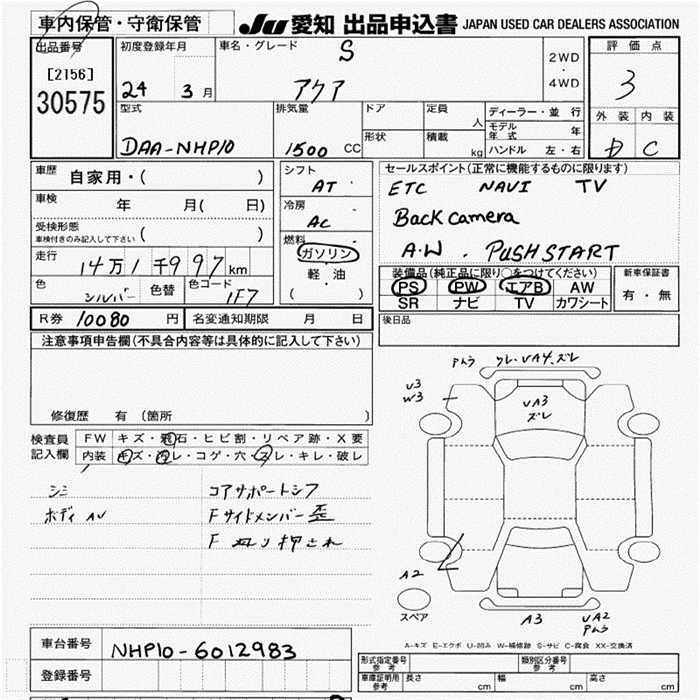 車内保管・守衛保管
JU 愛知 出品申込書 JAPAN USED CAR DEALERS ASSOCIATION
出品番号
[2156]
30575
初度登録年月
24 3 月
車名・グレード
S
アクア
2WD
・
4WD
評価点
3
外装 内装
D C
型式
DAA-NHP10
排気量
1500 CC
ドア
定員
人
形状
積載
kg
ディーラー・並行
モデル年式 年
ハンドル 左・右
車歴
自家用・( )
車検
年 月( 日)
受検形態
車検付きのみ記入して下さい ( )
走行
14万1千997km
色
シルバー
色替
色コード
1F7
シフト
AT
冷房
AC
燃料
ガソリン
・
軽・油
( )
セールスポイント(正常に機能するものに限ります)
ETC NAVI TV
Back camera
A.W. PUSH START
装備品(純正品に限り○をつけてください)
PS PW エアB AW
SR ナビ TV カワシート
新車保証書
有・無
R券 10080 円
名変通知期限 月 日
後日品
注意事項申告欄(不具合内容等は具体的に記入して下さい)
修復歴 有 (箇所 )
検査員
記入欄
FW キズ・飛石・ヒビ割・リペア跡・X要
内装 キズ・ヨレ・コゲ・穴・スレ・キレ・破レ
シミ
ボディ AU
コアサポートシフ
Fサイドメンバー歪
押され
ワレ・UA4.ズレ
U3
W3
UA3
ズレ
A2
スペア
A3
UA2
A-キズ E-エクボ U-凹み W-補修跡 S-サビ C-腐食 XX-交換済
車台番号
NHP10-6012983
登録番号
形式指定番号
参考
類別区分番号
参考
車庫証明用
参考
長さ cm
幅 cm
高さ cm